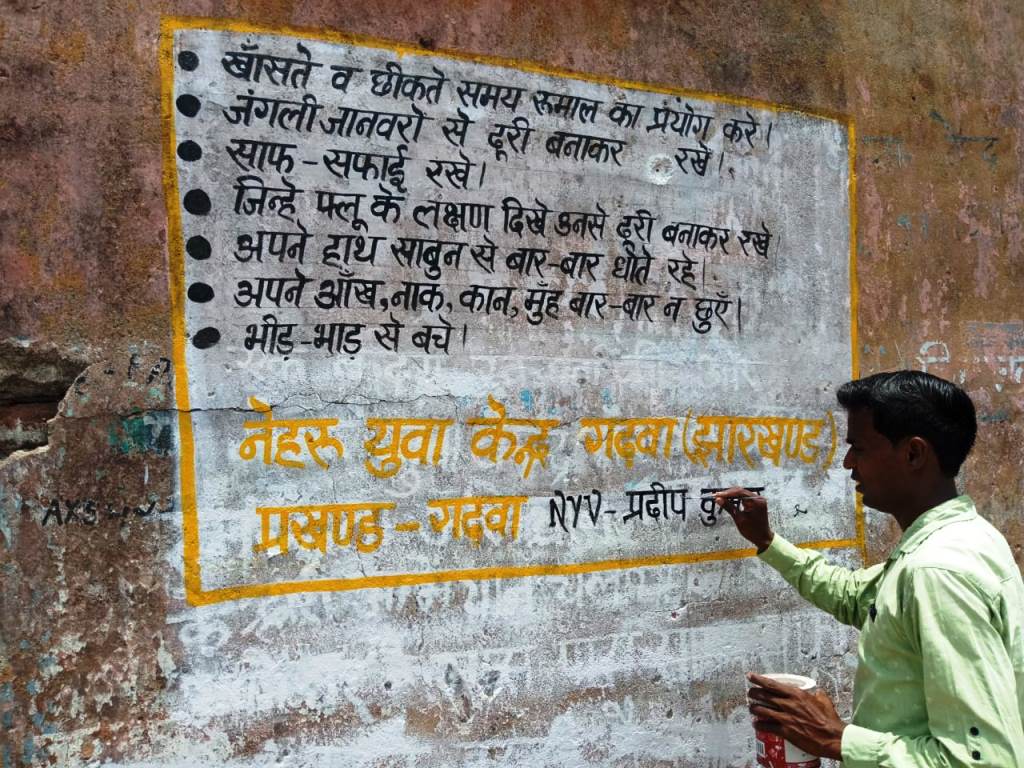 • खाँसते व छीकते समय रूमाल का प्रंयोग करे।
• जंगली जानवरो से दूरी बनाकर रखे।
• साफ-सफाई रखे।
• जिन्हे फ्लू के लक्षण दिखे उनसे दूरी बनाकर रखे
• अपने हाथ साबुन से बार-बार धोते रहे।
• अपने आँख, नाक, कान, मुँह बार-बार न छुएँ।
• भीड़-भाड़ से बचे।
नेहरू युवा केन्द्र गढ़वा (झारखण्ड)
प्रखण्ड - गढ़वा NYV- प्रदीप